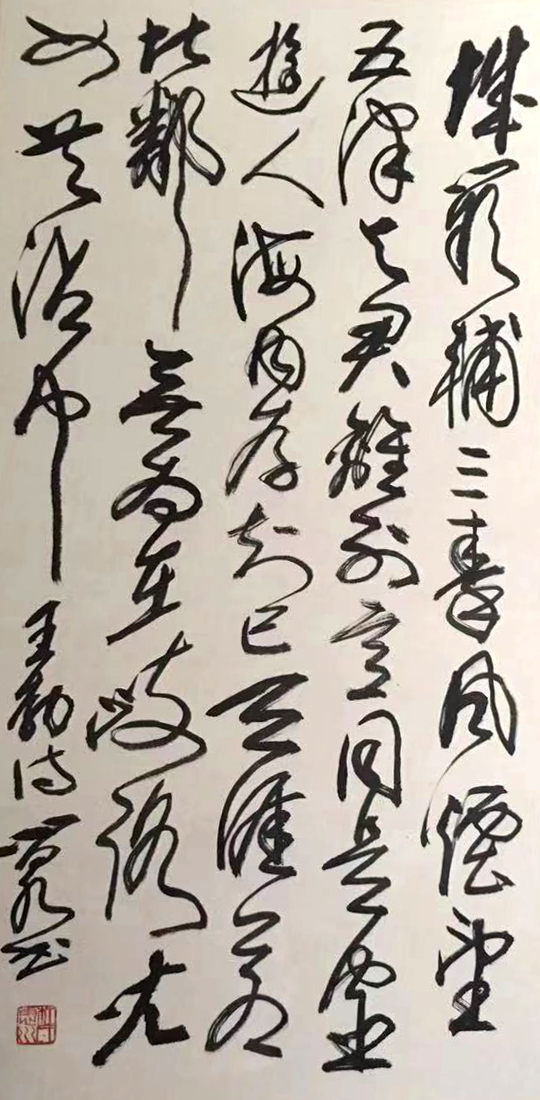 城闕輔三秦風煙望
五津与君離別意同是宦
遊人海内存知己天涯若
比鄰無為在歧路兒
女共沾巾
王勃詩 书